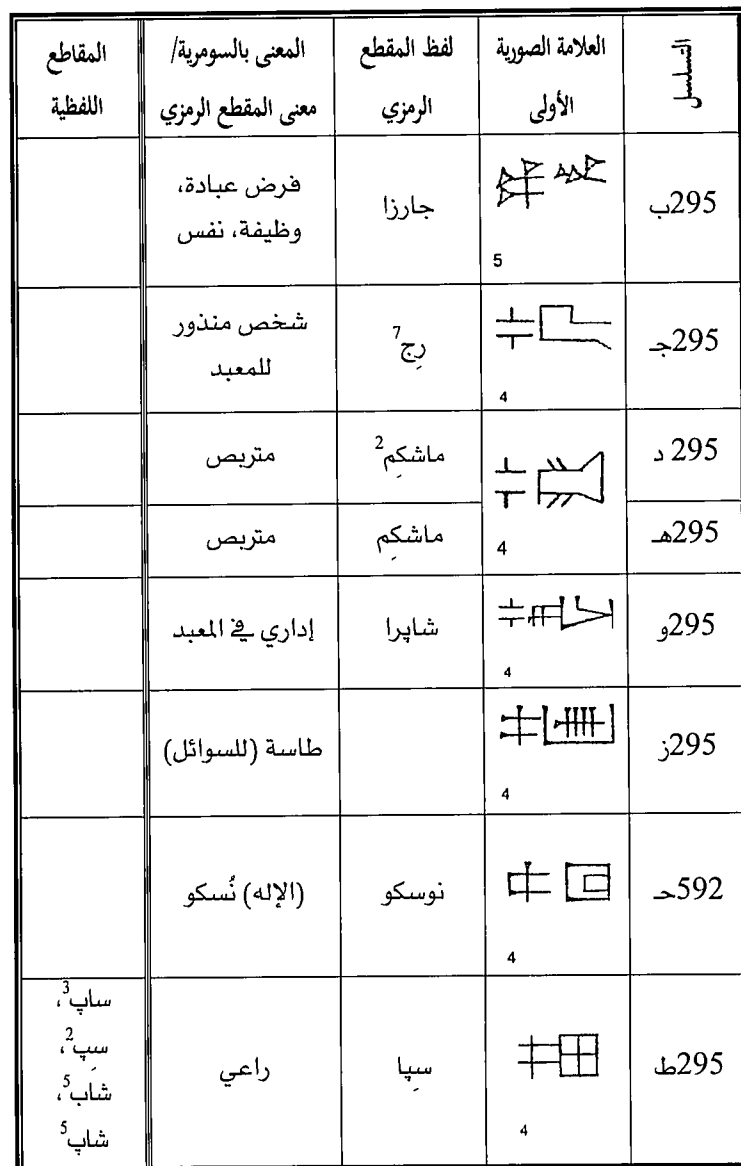 التسلسل
العلامة الصورية
الأولى
لفظ المقطع
الرمزي
المعنى بالسومرية/
معنى المقطع الرمزي
المقاطع
اللفظية
295ب
5
جارزا
فرض عبادة،
وظيفة، نفس
295جـ
4
رِج7
شخص منذور
للمعبد
295 د
ماشكِم2
متربص
295هـ
4
ماشكِم
متربص
295و
4
شاپرا
إداري في المعبد
295ز
4
طاسة (للسوائل)
592حـ
4
نوسكو
(الإله) نُسكو
295ط
4
سِپا
راعي
ساپ3،
سِپ2،
شاب5،
شاپ5